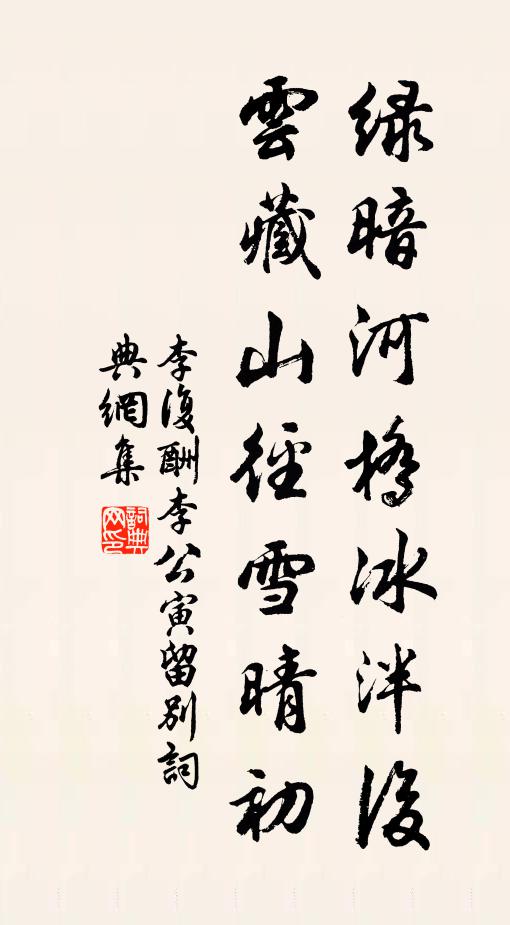 緑暗河橋冰泮後
雲藏山徑雪晴初
李復酬李公寅留別詞
典網集
詞典网印